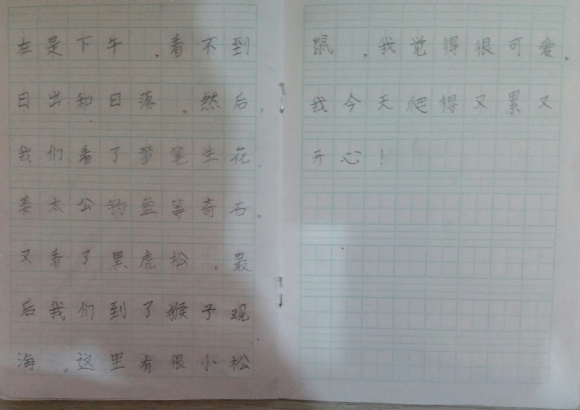 在是下午。看不到
日出和日落。然后,
我们看了梦笔生花
姜太公钓鱼等奇石。
又看了黑虎松。最
后我们到了猴子观
海。这里有很小松
鼠。我觉得很可爱。
我今天爬得又累又
开心!